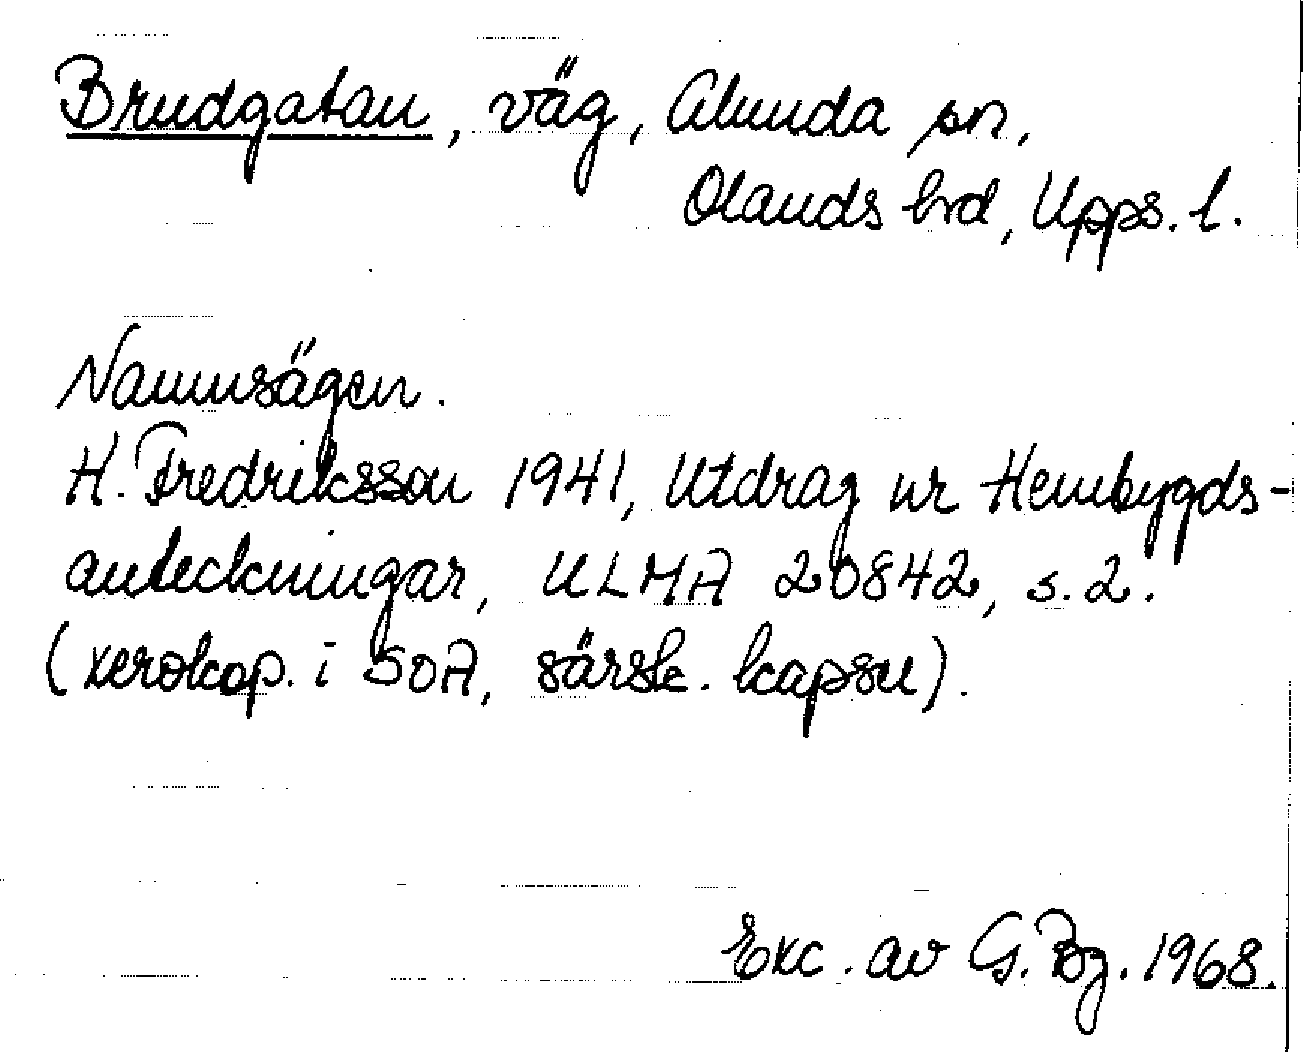 Brudgatan, väg, Alunda sn,
Olands hrd, Upps. l.
Namnsägen.
H. Fredriksson 1941, Utdrag ur Hembygds-
anteckningar, ULMA 20842, s. 2.
(xerokop. i SOA, särsk. kapsel).
Exc. av G. Bg. 1968.